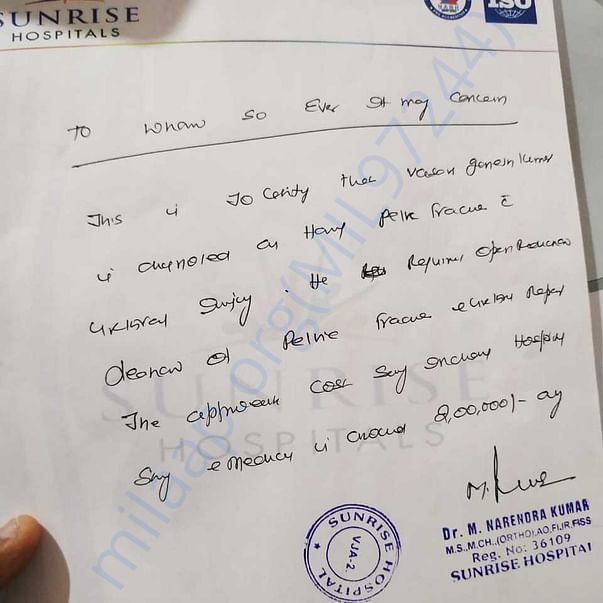 SUNRISE
HOSPITALS
ISO
To whom so Ever It may concern
This is To Certify that Vasan ganesh kumar
is diagnosed as Having Pelvic fracture c̄
urethral Injury. He Requires Open Reduction
of Pelvic fracture & urethral Repair
The approximate cost Surgery including Hospital
Stay & medicines is around 2,00,000/-
SUNRISE HOSPITALS
milaap.org(MIL97244)
SUNRISE HOSPITAL
VJA-2.
Dr. M. NARENDRA KUMAR
M.S.,M.CH.,(ORTHO),AO,FIJR,FISS
Reg. No: 36109
SUNRISE HOSPITAL